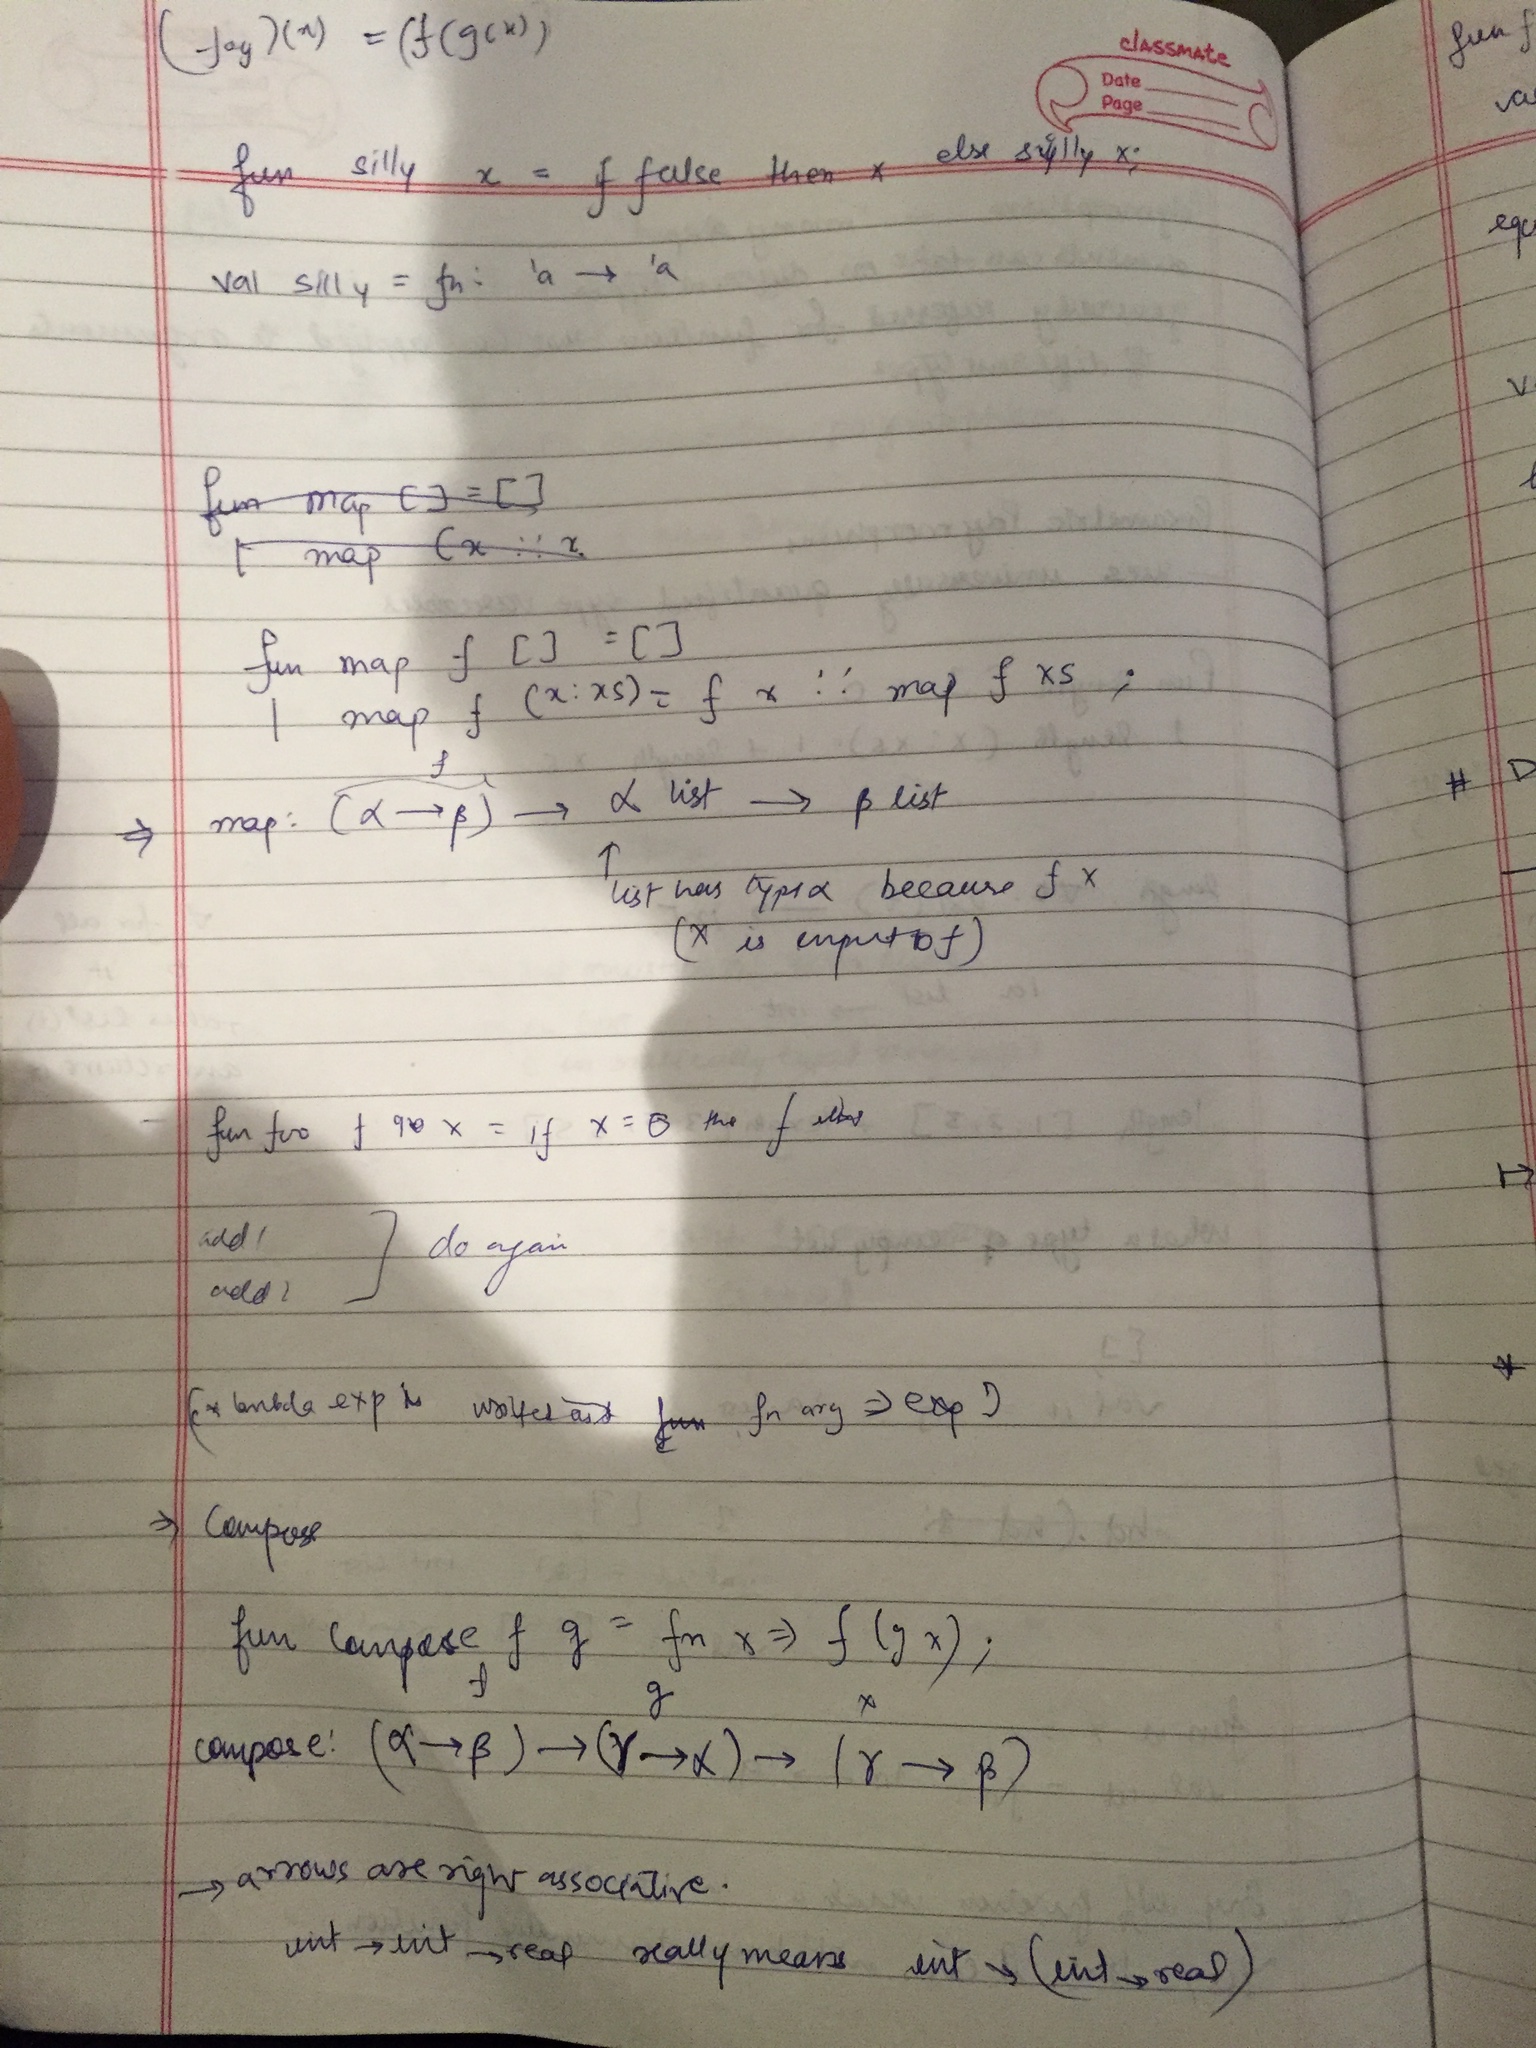 (fog)(x) = (f(g(x))
classmate
Date
Page
fun silly x = if false then x else silly x;
val silly = fn: 'a → 'a
fun map [] = []
| map (x :: x
fun map f [] = []
| map f (x:xs) = f x :: map f xs ;
f
⇒ map: (α → β) → α list → β list
↑
list has type α because f x
(x is input to f)
fun foo f x = if x = 0 the f
add1
add2 ] do again
(* lambda exp is fun fn arg ⇒ exp )
⇒ Compose
fun compose f g = fn x ⇒ f (g x);
f g x
compose: (α → β) → (γ → α) → (γ → β)
→ arrows are right associative.
int → int → real really means int → (int → real)
fun f
va
equ
v
# D
*